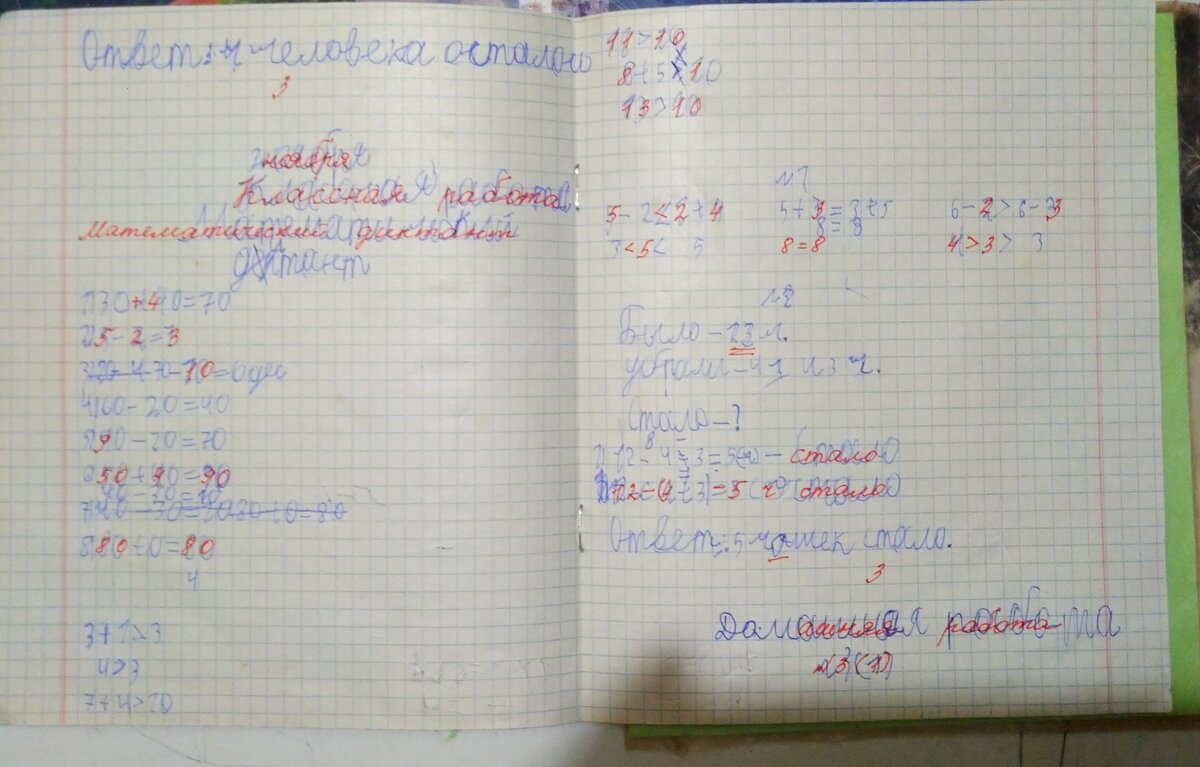 Ответ: 4 человека осталось
3
ноября
Классная работа.
Математический диктант
диктант
1) 30+40=70
2) 5-2=3
70-70=0 дес
4) 60-20=40
5) 90-20=70
6) 50+40=90
40-30=10
8) 80+0=80
4
3+1>3
4>3
7+4>10
11>10
8+5>10
13>10
№1
5-2<2+4 5+3=3+5 6-2>6-3
8=8
3<5< 5 8=8 4>3> 3
№2
Было - 12 л.
убрали - 4 и 3 ч.
Стало - ?
8
1) 12-4-3=5 - стало
12-(4+3)=5 (ч) стало
Ответ: 5 чашек стало.
3
Домашняя работа